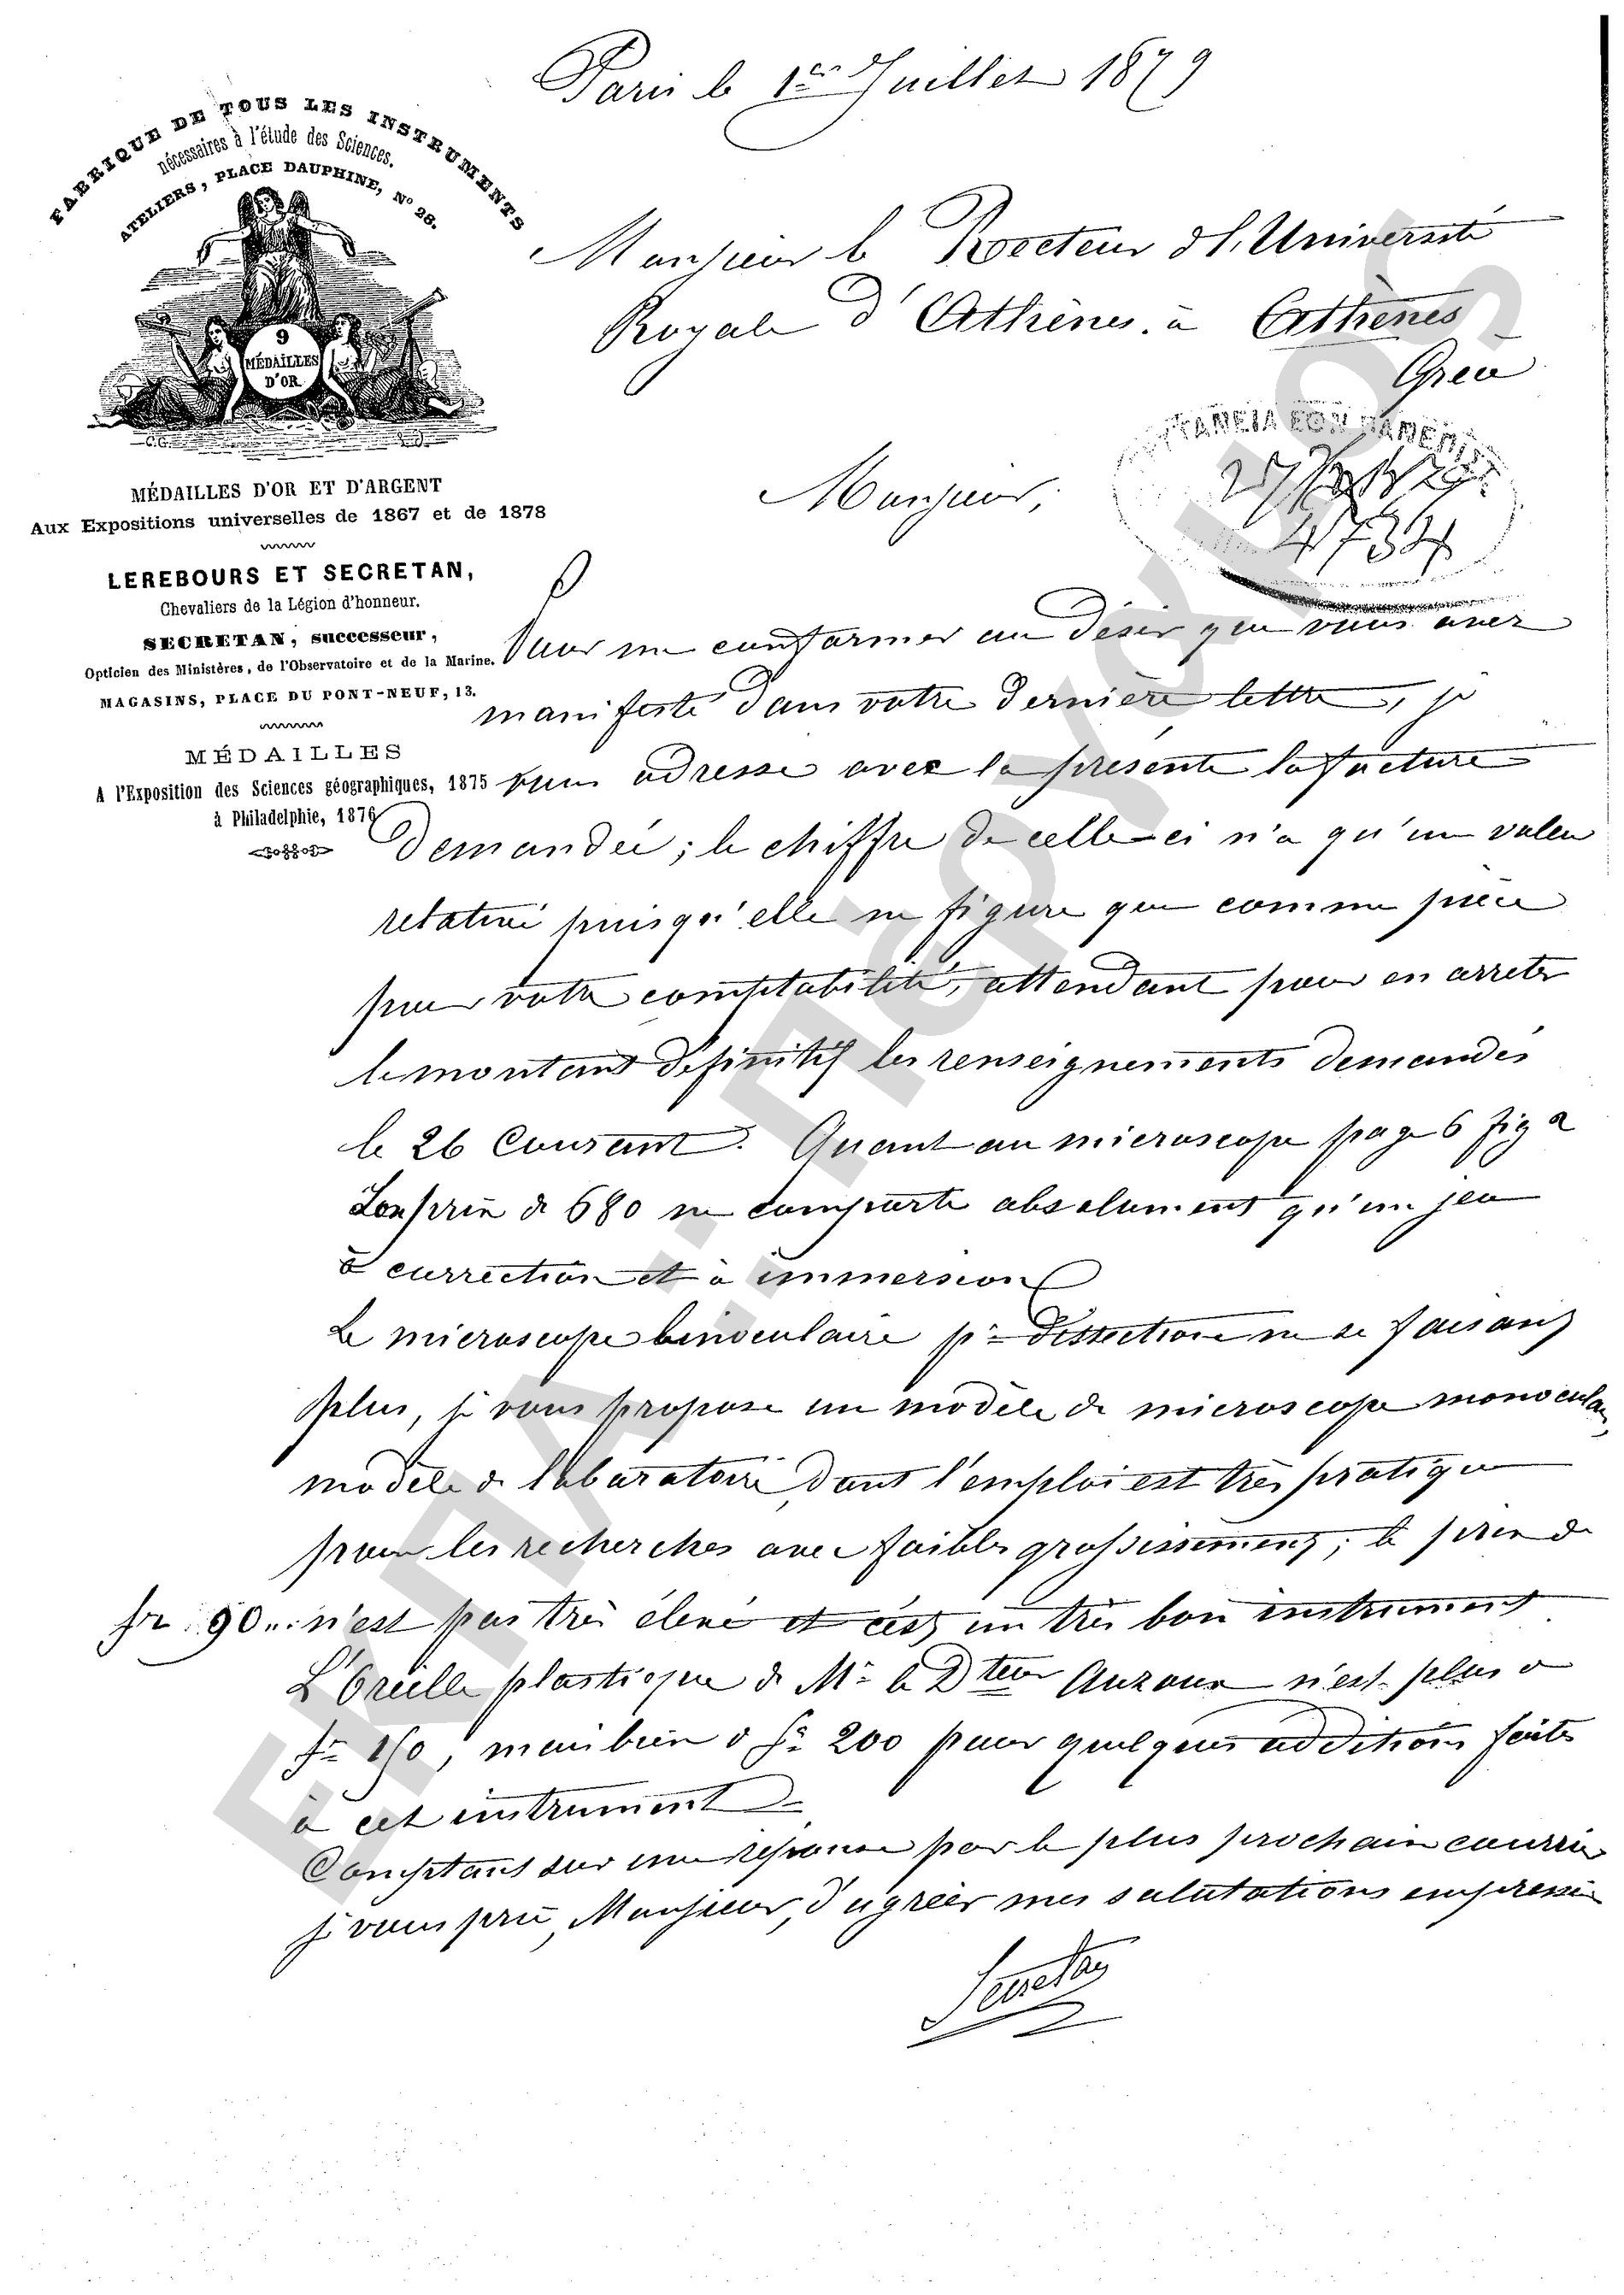 Paris le 1er Juillet 1879
FABRIQUE DE TOUS LES INSTRUMENTS
nécessaires à l'étude des Sciences.
ATELIERS, PLACE DAUPHINE, No 28.
9
MÉDAILLES
D'OR
MÉDAILLES D'OR ET D'ARGENT
Aux Expositions universelles de 1867 et de 1878
LEREBOURS ET SECRETAN,
Chevaliers de la Légion d'honneur.
SECRETAN, successeur,
Opticien des Ministères, de l'Observatoire et de la Marine.
MAGASINS, PLACE DU PONT-NEUF, 13.
MÉDAILLES
A l'Exposition des Sciences géographiques, 1875
à Philadelphie, 1876
Monsieur le Recteur d l'Université
Royale d'Athènes à Athènes
Grèce
4734
Monsieur,
Pour me conformer au désir que vous avez
manifesté dans votre dernière lettre, je
vous adresse avec la présente la facture
demandée; le chiffre de celle-ci n'a qu'une valeur
relative puisqu'elle ne figure que comme pièce
pour votre comptabilité, attendant pour en arrêter
le montant définitif les renseignements demandés
le 26 Courant. Quant au microscope page 6 fig 2
Son prix de 680 ne comporte absolument qu'un jeu
à correction et à immersion
Le microscope binoculaire pr dissection ne se faisant
plus, je vous propose un modèle de microscope monoculaire,
modèle de laboratoire, dont l'emploi est très pratique
pour les recherches avec faibles grossissements; le prix de
fr 90 n'est pas très élevé et c'est un très bon instrument
L'Oreille plastique de Mr le Dteur Auzoux n'est plus à
fr 150, mais bien à fr 200 pour quelques additions faites
à cet instrument
Comptant sur une réponse par le plus prochain courrier
je vous prie, Monsieur, d'agréer mes salutations empressées
Secretan
ΕΚΠΑ